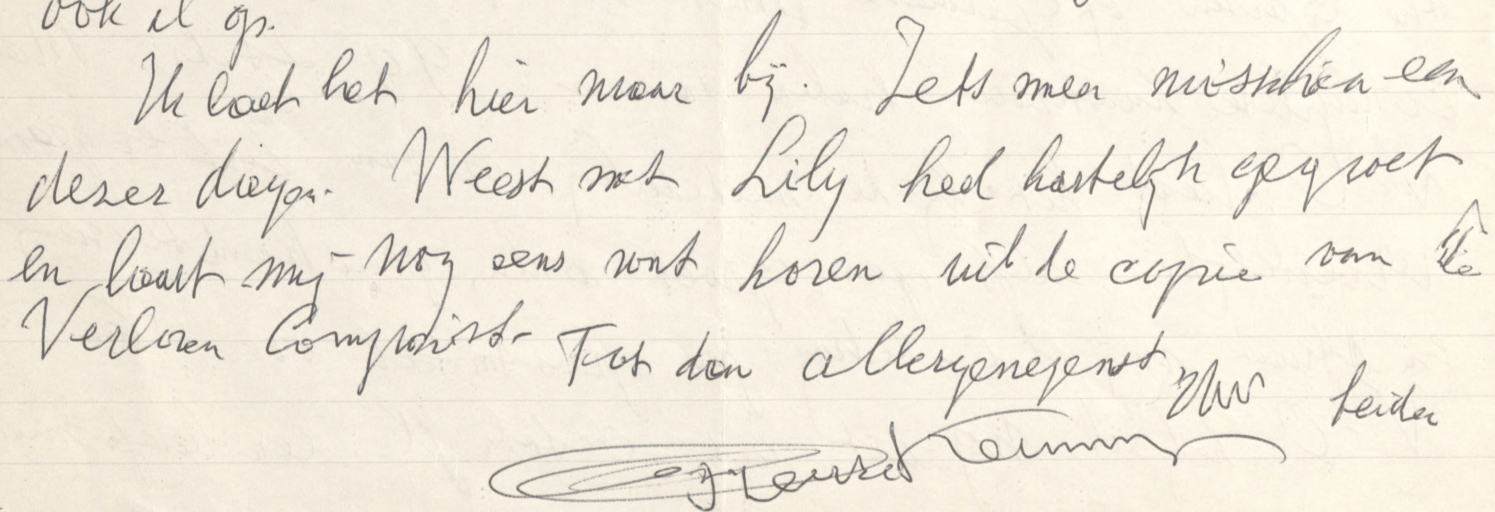 ook al op.
Ik laat het hier maar bij. Iets meer misschien een
dezer dagen. Weest met Lily heel hartelijk gegroet
en laat mij nog eens wat horen uit de copie van de
Verloren Componist. Tot dan allergenegenst
Uw beider